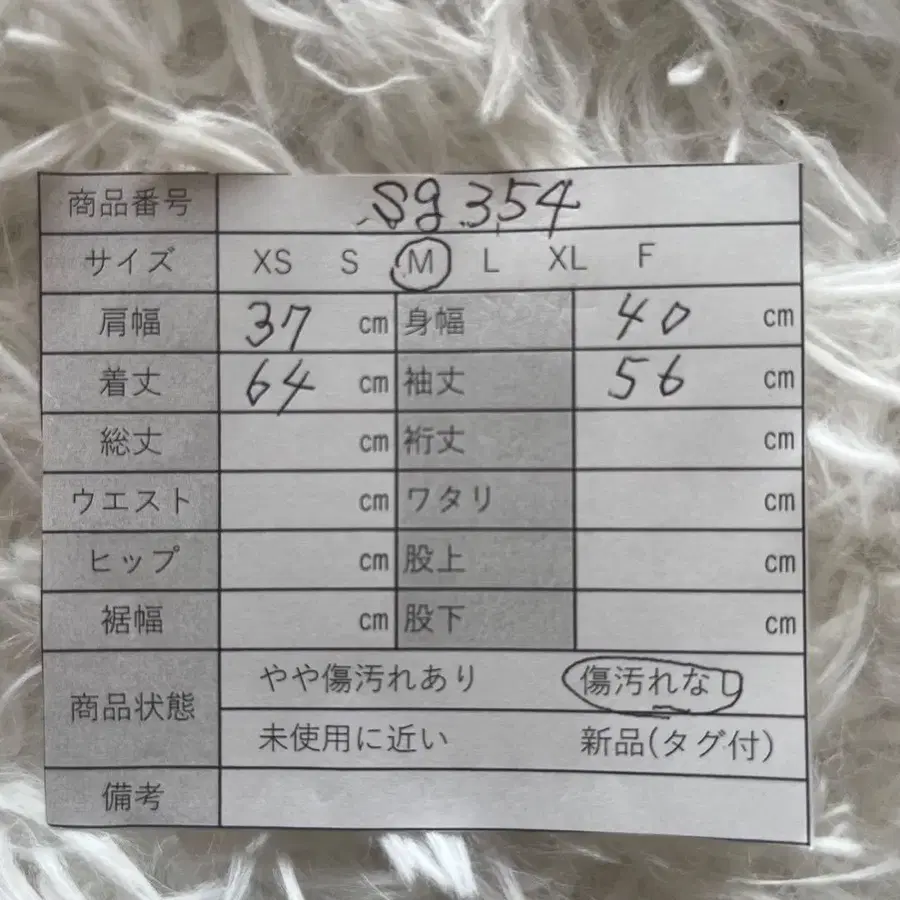 商品番号 sg354
サイズ XS S M L XL F
肩幅 37 cm 身幅 40 cm
着丈 64 cm 袖丈 56 cm
総丈 cm 裄丈 cm
ウエスト cm ワタリ cm
ヒップ cm 股上 cm
裾幅 cm 股下 cm
商品状態 やや傷汚れあり 傷汚れなし
未使用に近い 新品(タグ付)
備考